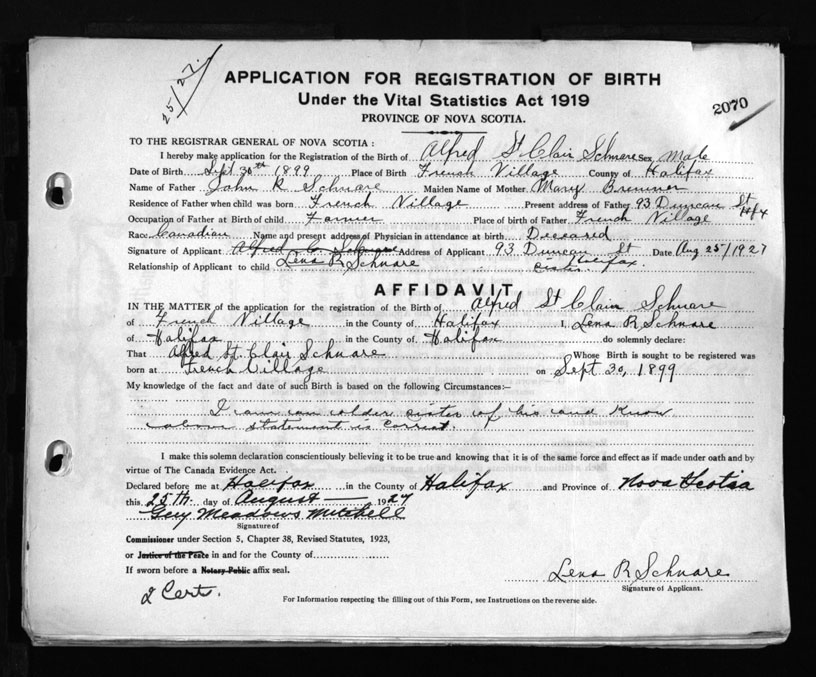 25/27.
APPLICATION FOR REGISTRATION OF BIRTH
Under the Vital Statistics Act 1919
2070
PROVINCE OF NOVA SCOTIA.
TO THE REGISTRAR GENERAL OF NOVA SCOTIA:
I hereby make application for the Registration of the Birth of Alfred St Clair Schnare Sex Male
Date of Birth Sept 30th 1899 Place of Birth French Village County of Halifax
Name of Father John R Schnare Maiden Name of Mother Mary Bremner
Residence of Father when child was born French Village Present address of Father 93 Duncan St Hfx
Occupation of Father at Birth of child Farmer Place of birth of Father French Village
Race Canadian Name and present address of Physician in attendance at birth Deceased
Signature of Applicant Alfred C. Schnare Address of Applicant 93 Duncan St Halifax. Date Aug 25/1927
Relationship of Applicant to child Lena R Schnare sister
AFFIDAVIT
IN THE MATTER of the application for the registration of the Birth of Alfred St Clair Schnare
of French Village in the County of Halifax I, Lena R Schnare
of Halifax in the County of Halifax do solemnly declare:
That Alfred St. Clair Schnare Whose Birth is sought to be registered was
born at French Village on Sept 30, 1899
My knowledge of the fact and date of such Birth is based on the following Circumstances:—
I am an older sister of his and know
above statement is correct.
I make this solemn declaration conscientiously believing it to be true and knowing that it is of the same force and effect as if made under oath and by
virtue of The Canada Evidence Act.
Declared before me at Halifax in the County of Halifax and Province of Nova Scotia
this 25th day of August 1927
Guy Meadows Mitchell
Signature of
Commissioner under Section 5, Chapter 38, Revised Statutes, 1923,
or Justice of the Peace in and for the County of
If sworn before a Notary Public affix seal.
Lena R Schnare
Signature of Applicant.
2 Certs.
For Information respecting the filling out of this Form, see Instructions on the reverse side.